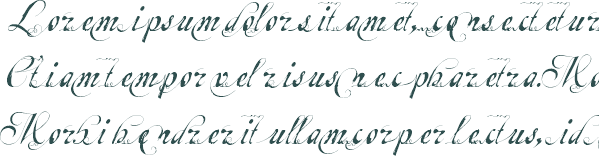 Lorem ipsum dolor sit amet, consectetur
Etiam tempor vel risus nec pharetra. Ma
Morbi hendrerit ullamcorper lectus, id